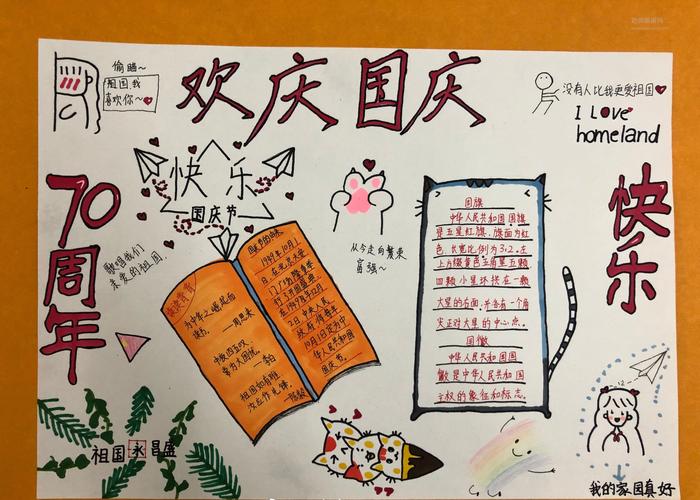 欢庆国庆
偷瞄~
祖国我
喜欢你~
没有人比我更爱祖国
I Love
homeland
70周年
快乐
快乐
国庆节
歌唱我们
亲爱的祖国.
从今走向繁荣
富强~
读读背背
为中华之崛起而
读书。
—周恩来
祖国如有难
国庆节的由来
1949年10月1
日,在北京天安
门广场
2日中央人民
政府
10月1日定为中
华人民共和国
国庆节。
国旗
中华人民共和国国旗
是五星红旗.旗面为红
色,长宽比例为3:2.左
上方缀黄色五角星五颗
四颗小星环拱在一颗
大星的右面,并各有一个角
尖正对大星的中心点。
国徽
中华人民共和国国
徽是中华人民共和国
主权的象征和标志。
祖国永昌盛
我的家园真好